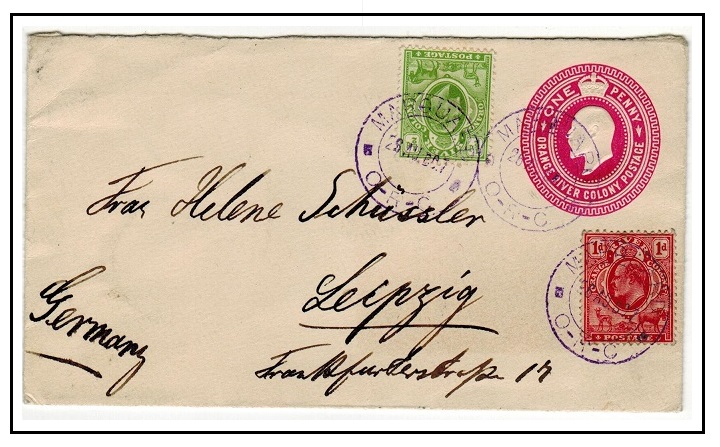 POSTAGE
ONE PENNY
ORANGE RIVER COLONY POSTAGE
MARQUARD
O-R-C
O-R-C
Frau Helene Schüssler
Leipzig
Germany
Frankfurterstraße 17
1d 1d
POSTAGE
O-R-C